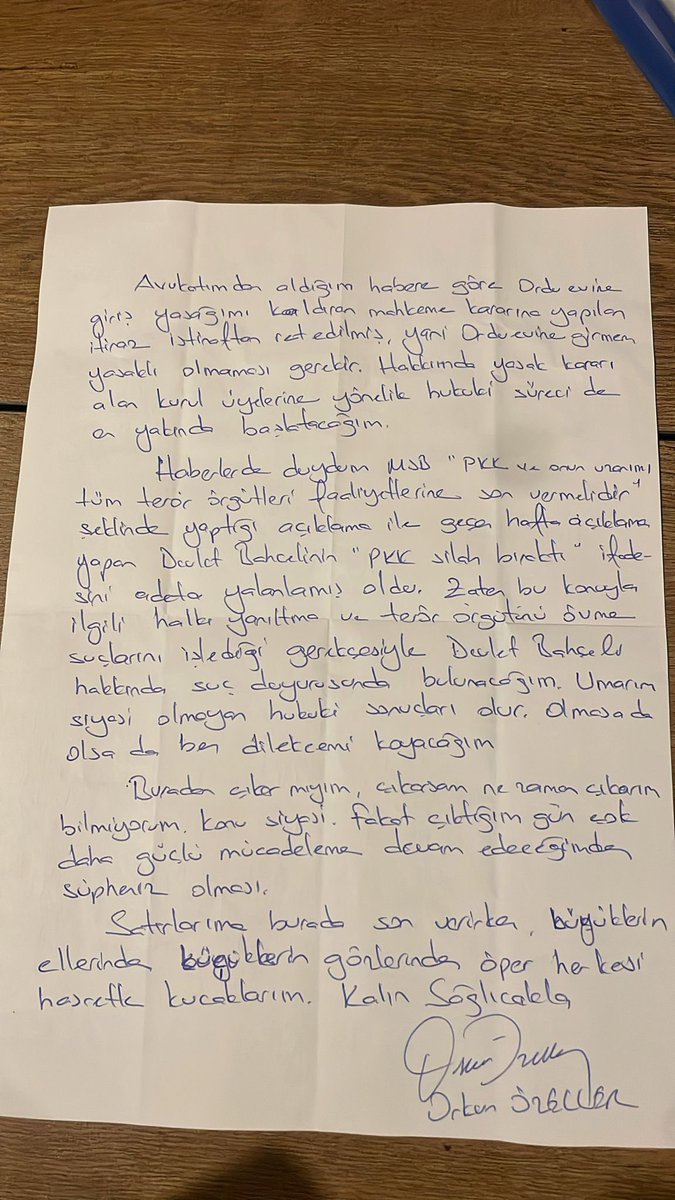 Avukatımdan aldığım habere göre Orduevine
giriş yasağımı kaldıran mahkeme kararına yapılan
itiraz istinaftan ret edilmiş, yani Orduevine girmem
yasaklı olmaması gerekir. Hakkımda yasak kararı
alan kurul üyelerine yönelik hukuki süreci de
en yakında başlatacağım.
Haberlerde duydum MSB "PKK ve onun uzanımı
tüm terör örgütleri faaliyetlerine son vermelidir"
şeklinde yaptığı açıklama ile geçen hafta açıklama
yapan Devlet Bahçelinin "PKK silah bıraktı" ifade-
sini adeta yalanlamış oldu. Zaten bu konuyla
ilgili halkı yanıltma ve terör örgütünü övme
suçlarını işlediği gerekçesiyle Devlet Bahçeli
hakkında suç duyurusunda bulunacağım. Umarım
siyasi olmayan hukuki sonuçları olur. Olmasa da
olsa da ben dilekçemi koyacağım
Buradan çıkar mıyım, çıkarsam ne zaman çıkarım
bilmiyorum. Konu siyasi. Fakat çıktığım gün çok
daha güçlü mücadeleme devam edeceğimden
şüpheniz olmasın.
Satırlarıma burada son verirken, büyüklerin
ellerinden büyüklerin gözlerinden öper herkesi
hasretle kucaklarım. Kalın Sağlıcakla
Orkun ÖZELLER